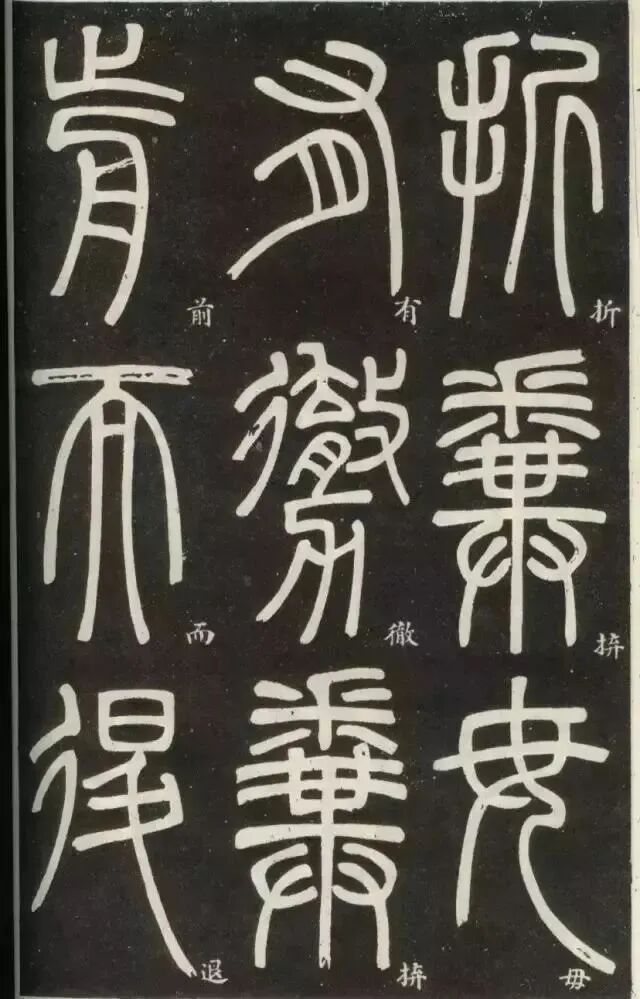 折拚毋
有徹拚
前而退